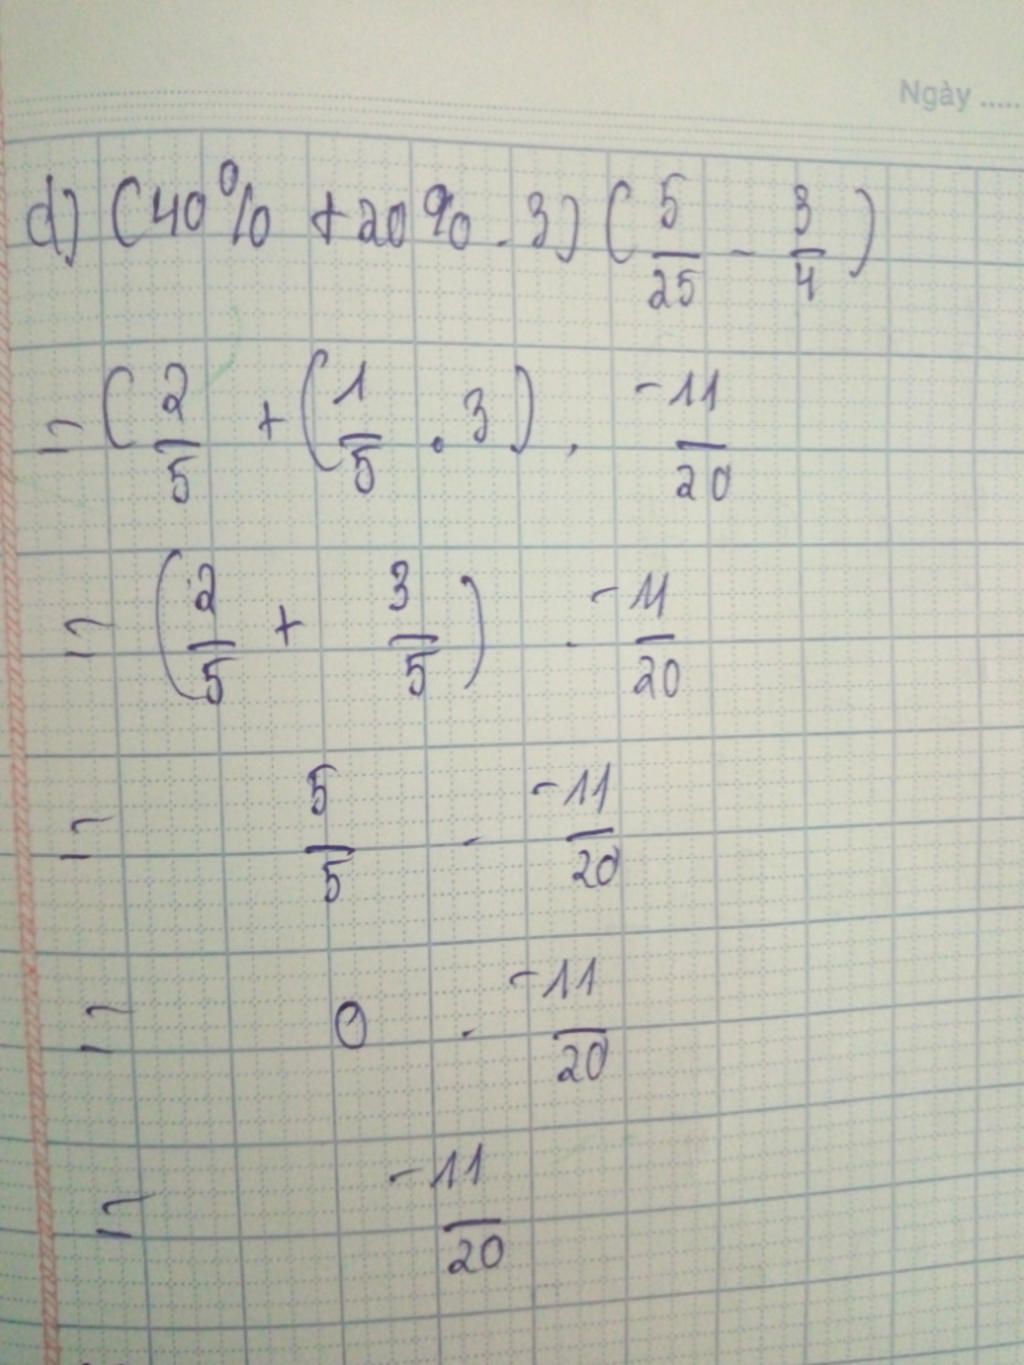 Ngày .....
d) (40% + 20% . 3) (5/25 - 3/4)
= (2/5 + (1/5 . 3) . -11/20
= (2/5 + 3/5) . -11/20
= 5/5 . -11/20
= 0 . -11/20
= -11/20